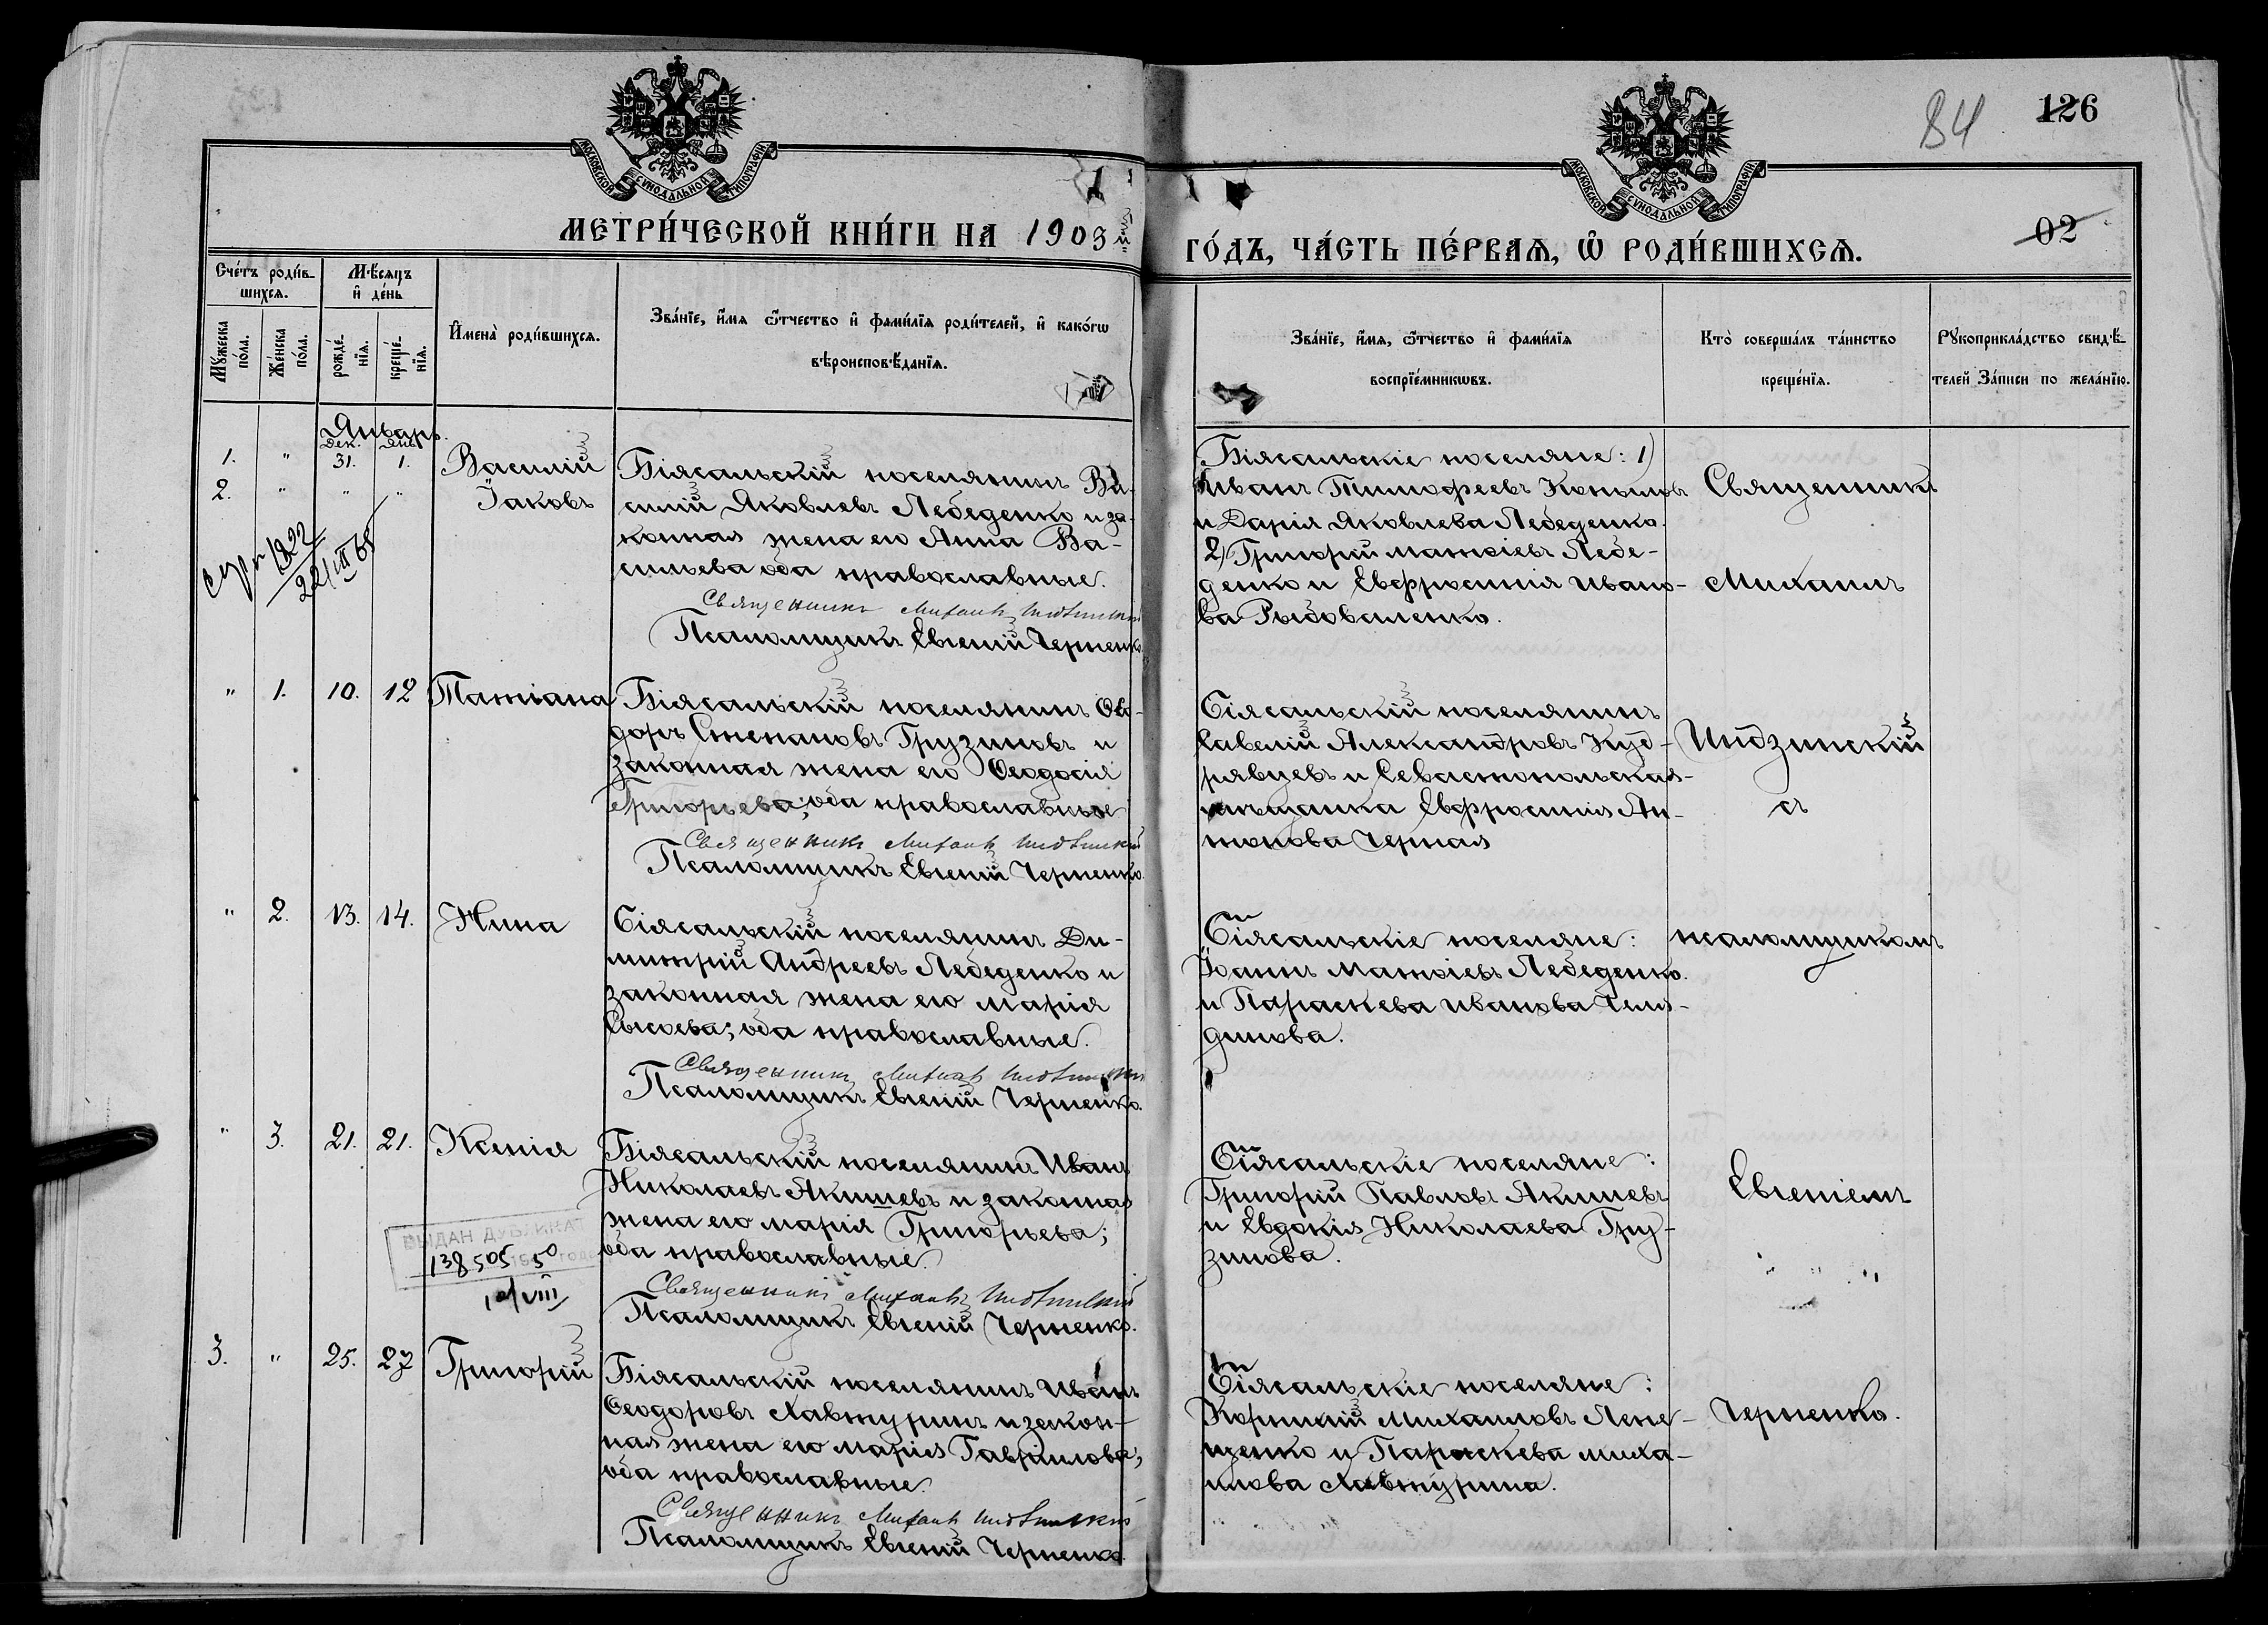 84
126
02
МОСКОВСКОЙ СУНОДАЛЬНОЙ ТИПОГРАФІИ
МОСКОВСКОЙ СУНОДАЛЬНОЙ ТИПОГРАФІИ
МЕТРИ́ЧЕСКОЙ КНИ́ГИ НА 1903й
ГО́ДЪ, ЧА́СТЬ ПЕ́РВАЯ, Ѡ РОДИ́ВШИХСЯ.
Сче́тъ роди́в-
шихся.
Мꙋ́жеска по́ла.
Же́нска по́ла.
Мѣ́сяцъ
и҆ де́нь
рожде́-
нїя.
креще́-
нїя.
И҆мена̀ роди́вшихся.
Зва́нїе, и҆́мя ѻ҆́тчество и҆ фами́лїя роди́телей, и҆ како́гѡ
вѣроисповѣ́данїя.
Зва́нїе, и҆́мя, ѻ҆́тчество и҆ фами́лїя
воспрїе́мникѡвъ.
Кто̀ соверша́лъ та́инство
креще́нїя.
Рꙋкоприкла́дство свидѣ́-
телей За́писи по жела́нїю.
Январь.
Дек. Янв.
1. " 31. 1. Василій
2. " " " Іаковъ
Біясальскій поселянинъ Ва-
силій Яковлевъ Лебеденко и за-
конная жена его Анна Ва-
сильева оба православные.
Священникъ Михаилъ Индзинскій
Псаломщикъ Евгеній Черненко.
Біясальскіе поселяне: 1)
Иванъ Тимофеевъ Коныловъ
и Дарія Яковлева Лебеденко.
2) Григорій Матѳіевъ Лебе-
денко и Евфросинія Ивано-
ва Рыбоваленко.
Священникъ
Михаилъ
1822
22/III 65
" 1. 10. 12 Татіана
Біясальскій поселянинъ Ѳео-
доръ Степановъ Грузиновъ и
законная жена его Ѳеодосія
Григорьева; оба православные
Священникъ Михаилъ Индзинскій
Псаломщикъ Евгеній Черненко.
Біясальскій поселянинъ
Савелій Александровъ Куд-
рявцевъ и Севастопольская
мѣщанка Евфросинія Ан-
тонова Черная
Индзинскій
съ
" 2. 13. 14. Нина
Біясальскій поселянинъ Ди-
митрій Андреевъ Лебеденко и
законная жена его Марія
Сысоева; оба православные.
Священникъ Михаилъ Индзинскій
Псаломщикъ Евгеній Черненко.
Біясальскіе поселяне:
Іоаннъ Матѳіевъ Лебеденко.
и Параскева Иванова Челя-
динова.
псаломщикомъ
" 3. 21. 21. Ксенія
Біясальскій поселянинъ Иванъ
Николаевъ Акишевъ и законная
жена его Марія Григорьева;
оба православные.
Священникъ Михаилъ Индзинскій
Псаломщикъ Евгеній Черненко.
Біясальскіе поселяне:
Григорій Павловъ Акишевъ
и Евдокія Николаева Гру-
зинова.
Евгеніемъ
ВЫДАН ДУБЛИКАТ
138505 50
10/VIII
3. " 25. 27 Григорій
Біясальскій поселянинъ Иванъ
Ѳеодоровъ Хавтуринъ и закон-
ная жена его Марія Гавріилова;
оба православные.
Священникъ Михаилъ Индзинскій
Псаломщикъ Евгеній Черненко.
Біясальскіе поселяне:
Корнилій Михаиловъ Леле-
щенко и Параскева Миха-
илова Хавтурина.
Черненко.